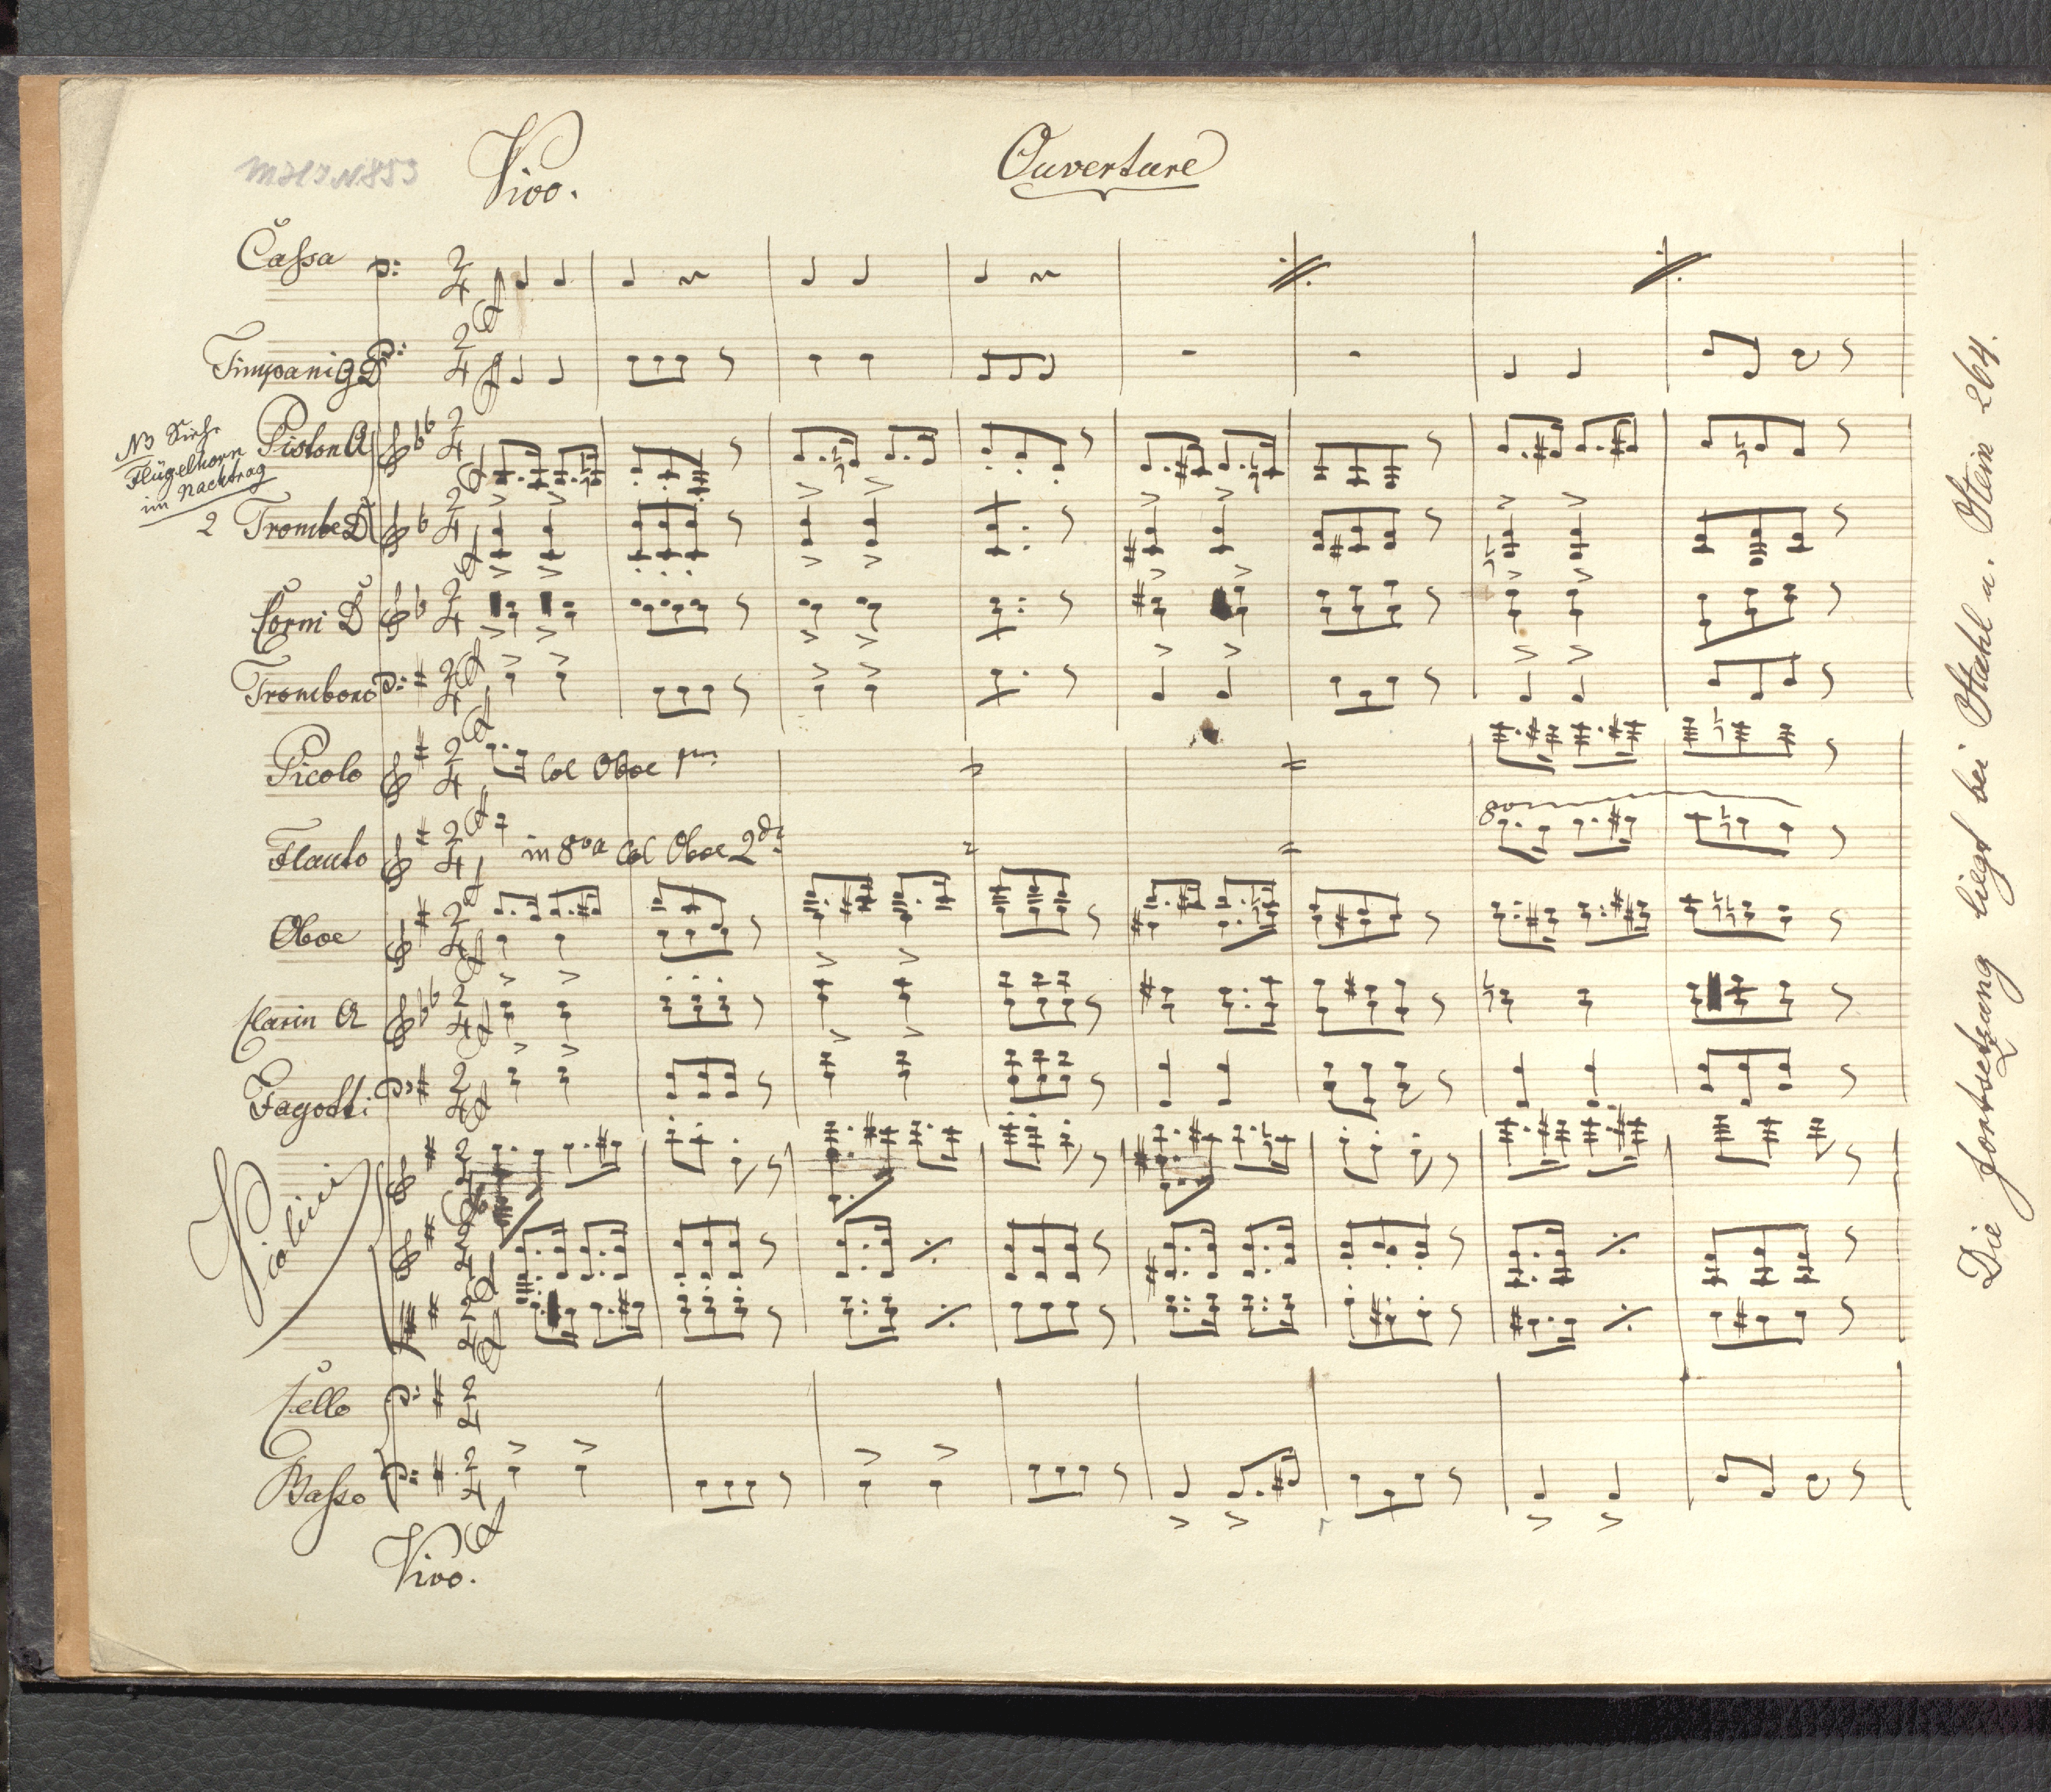 Vivo.
Ouverture
Cassa
Timpani G D
NB Siehe
Flügelhorn
im Nachtrag
Piston A
2 Trombe D
Corni D
Trombono
Picolo
Col Oboe pmo
Flauto
in 8va Col Oboe 2do
8va
Oboe
Clarin A
Fagotti
Violini
Cello
Basso
Vivo.
Die Fortsetzung liegt bei Stahl u. Stein 264.